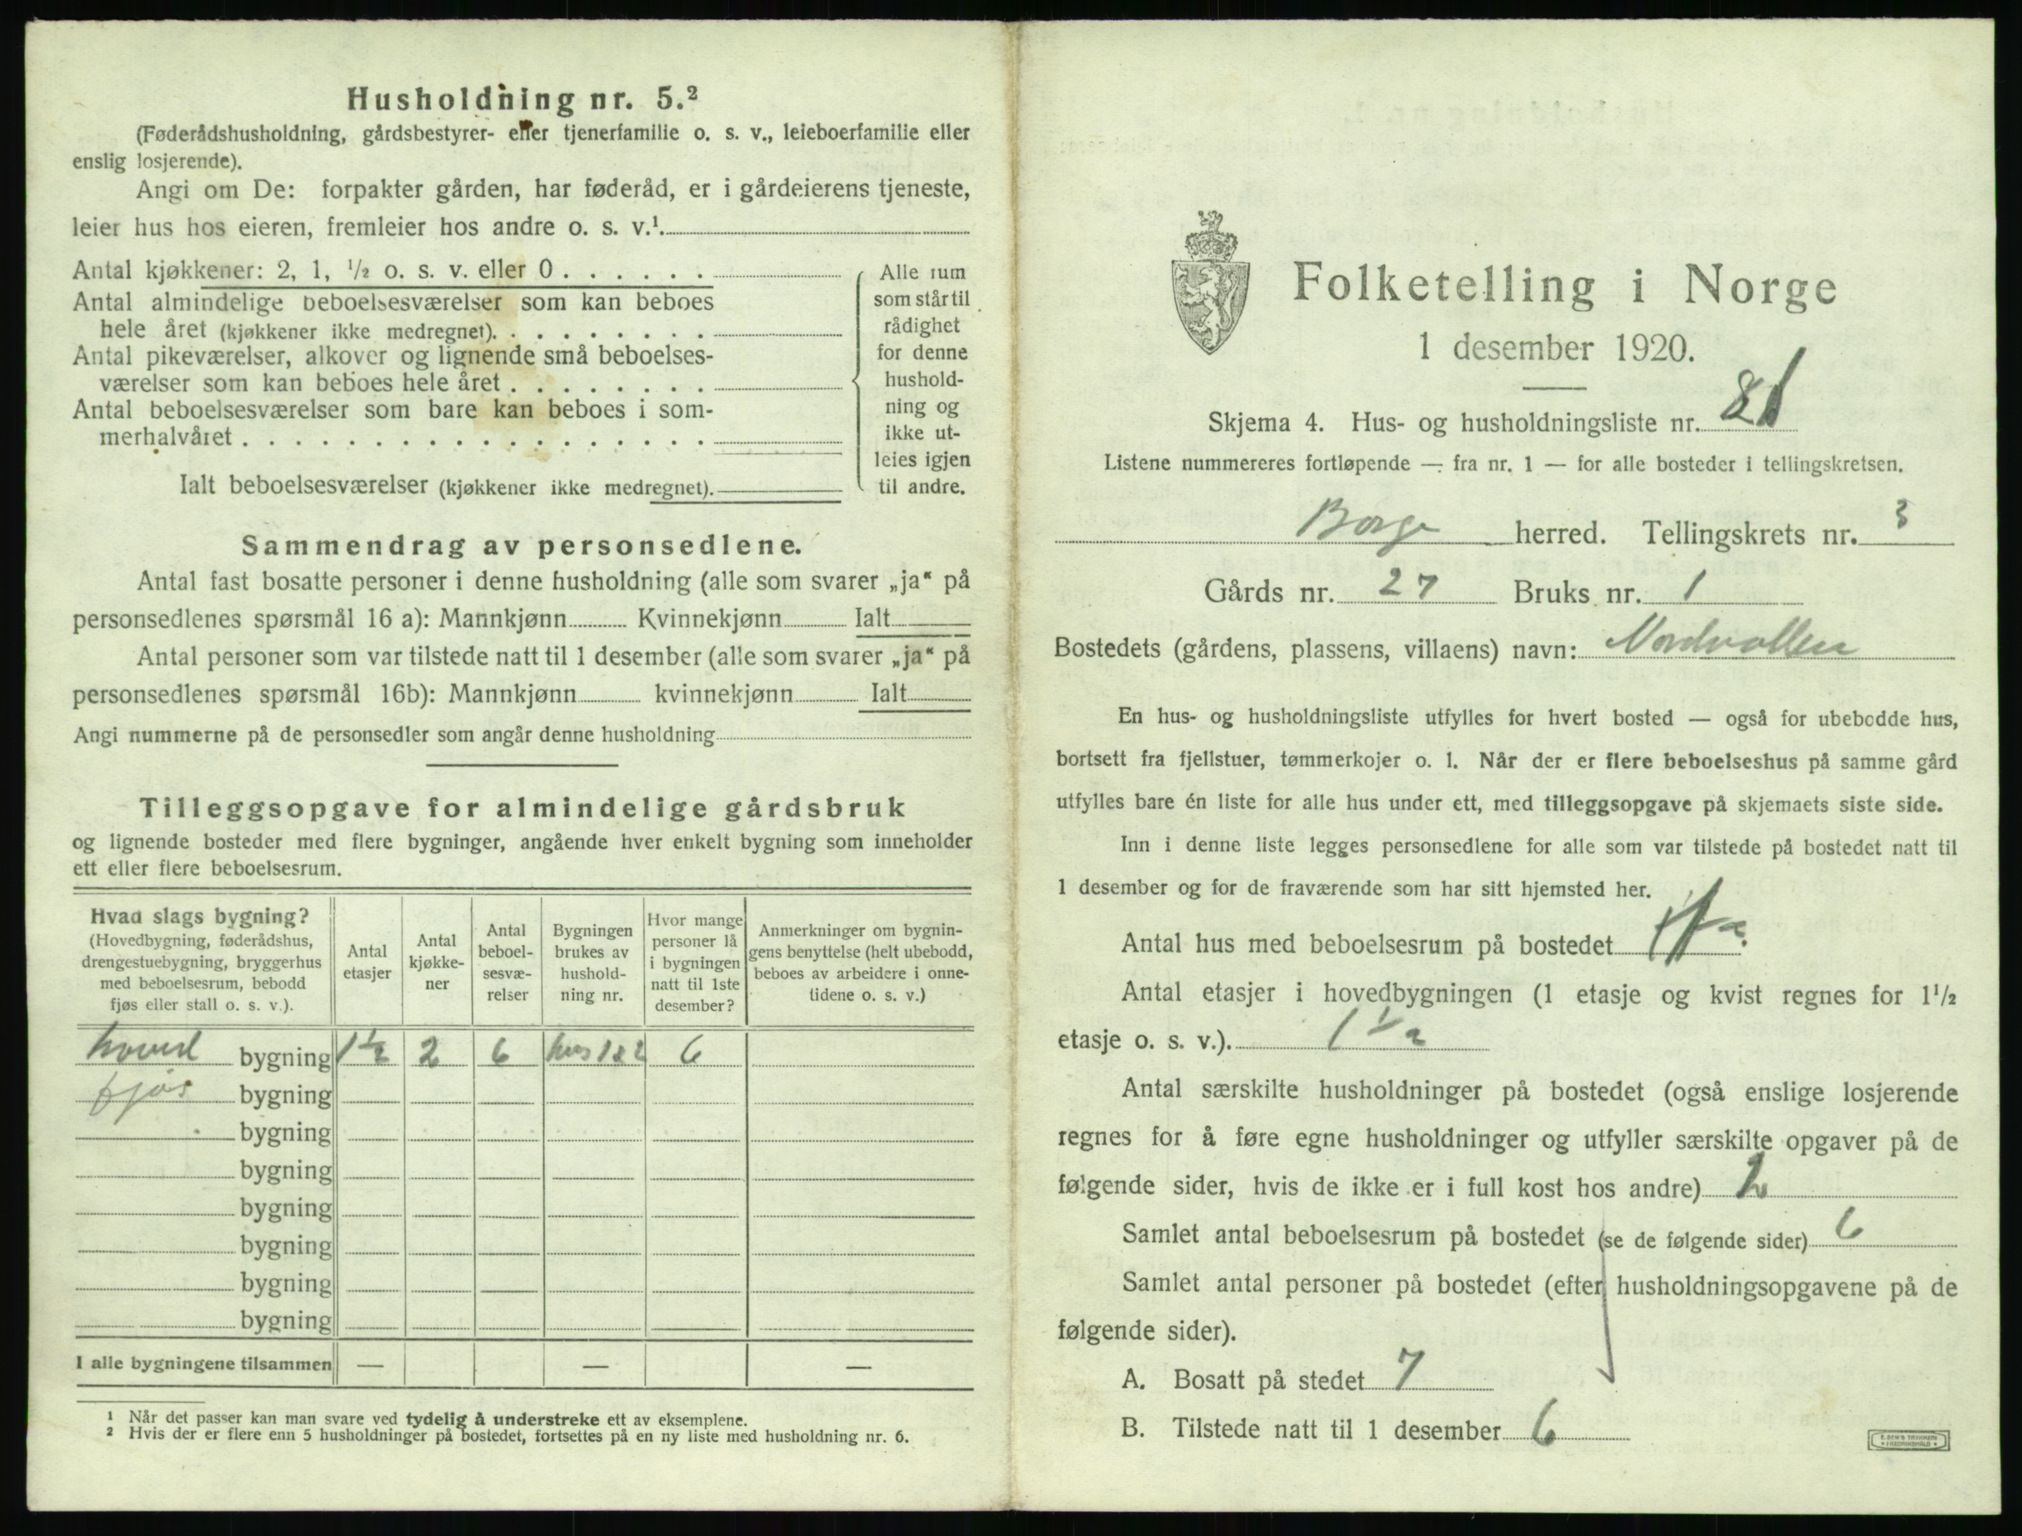 Husholdning nr. 5.²
(Føderådshusholdning, gårdsbestyrer- eller tjenerfamilie o. s. v., leieboerfamilie eller
enslig losjerende).
Angi om De: forpakter gården, har føderåd, er i gårdeierens tjeneste,
leier hus hos eieren, fremleier hos andre o. s. v.¹
Antal kjøkkener: 2, 1, ½ o. s. v. eller 0
Antal almindelige beboelsesværelser som kan beboes
hele året (kjøkkener ikke medregnet).
Antal pikeværelser, alkover og lignende små beboelses-
værelser som kan beboes hele året
Antal beboelsesværelser som bare kan beboes i som-
merhalvåret
Ialt beboelsesværelser (kjøkkener ikke medregnet).
Alle rum
som står til
rådighet
for denne
hushold-
ning og
ikke ut-
leies igjen
til andre.
Sammendrag av personsedlene.
Antal fast bosatte personer i denne husholdning (alle som svarer „ja“ på
personsedlenes spørsmål 16 a): Mannkjønn Kvinnekjønn Ialt
Antal personer som var tilstede natt til 1 desember (alle som svarer „ja“ på
personsedlenes spørsmål 16b): Mannkjønn kvinnekjønn Ialt
Angi nummerne på de personsedler som angår denne husholdning
Tilleggsopgave for almindelige gårdsbruk
og lignende bosteder med flere bygninger, angående hver enkelt bygning som inneholder
ett eller flere beboelsesrum.
Hvad slags bygning?
(Hovedbygning, føderådshus,
drengestuebygning, bryggerhus
med beboelsesrum, bebodd
fjøs eller stall o. s. v.).
Antal
etasjer
Antal
kjøkke-
ner
Antal
beboel-
sesvæ-
relser
Bygningen
brukes av
hushold-
ning nr.
Hvor mange
personer lå
i bygningen
natt til 1ste
desember?
Anmerkninger om bygnin-
gens benyttelse (helt ubebodd,
beboes av arbeidere i onne-
tidene o. s. v.)
hoved bygning 1½ 2 6 hus 1 & 2 6
fjøs bygning
bygning
bygning
bygning
bygning
bygning
bygning
I alle bygningene tilsammen — — —
¹ Når det passer kan man svare ved tydelig å understreke ett av eksemplene.
² Hvis der er flere enn 5 husholdninger på bostedet, fortsettes på en ny liste med husholdning nr. 6.
Folketelling i Norge
1 desember 1920.
Skjema 4. Hus- og husholdningsliste nr. 81
Listene nummereres fortløpende — fra nr. 1 — for alle bosteder i tellingskretsen.
Borge herred. Tellingskrets nr. 3
Gårds nr. 27 Bruks nr. 1
Bostedets (gårdens, plassens, villaens) navn: Nordvollen
En hus- og husholdningsliste utfylles for hvert bosted — også for ubebodde hus,
bortsett fra fjellstuer, tømmerkojer o. l. Når der er flere beboelseshus på samme gård
utfylles bare én liste for alle hus under ett, med tilleggsopgave på skjemaets siste side.
Inn i denne liste legges personsedlene for alle som var tilstede på bostedet natt til
1 desember og for de fraværende som har sitt hjemsted her.
Antal hus med beboelsesrum på bostedet
Antal etasjer i hovedbygningen (1 etasje og kvist regnes for 1½
etasje o. s. v.). 1½
Antal særskilte husholdninger på bostedet (også enslige losjerende
regnes for å føre egne husholdninger og utfyller særskilte opgaver på de
følgende sider, hvis de ikke er i full kost hos andre) 2
Samlet antal beboelsesrum på bostedet (se de følgende sider) 6
Samlet antal personer på bostedet (efter husholdningsopgavene på de
følgende sider).
A. Bosatt på stedet 7
B. Tilstede natt til 1 desember 6